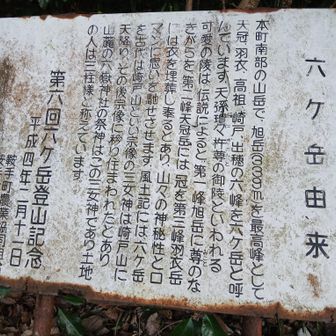 六ヶ岳由来
本町南部の山岳で、旭岳(339m)を最高峰として
天冠、羽衣、高祖、崎戸、出穂の六峰を六ケ岳と呼
んでいます。天孫瓊々杵尊の御陵といわれる
可愛の陵は、伝説によると、第一峰旭岳に尊のな
きがらを、第二峰天冠岳には、冠を、第三峰羽衣岳
には衣を埋葬し奉るとあり、山々の神秘性とロ
マンに思いを馳せさせます。風土記には、六ケ岳
を古代は崎戸山といい宗像の三女神は崎戸山に
天降り、その後宗像に移り住まわれたとあり
山麓の六嶽神社の祭神はこの三女神であり土地
の人は三柱様と称えています。
第六回六ケ岳登山記念
平成四年二月十一日
鞍手町農業協同組